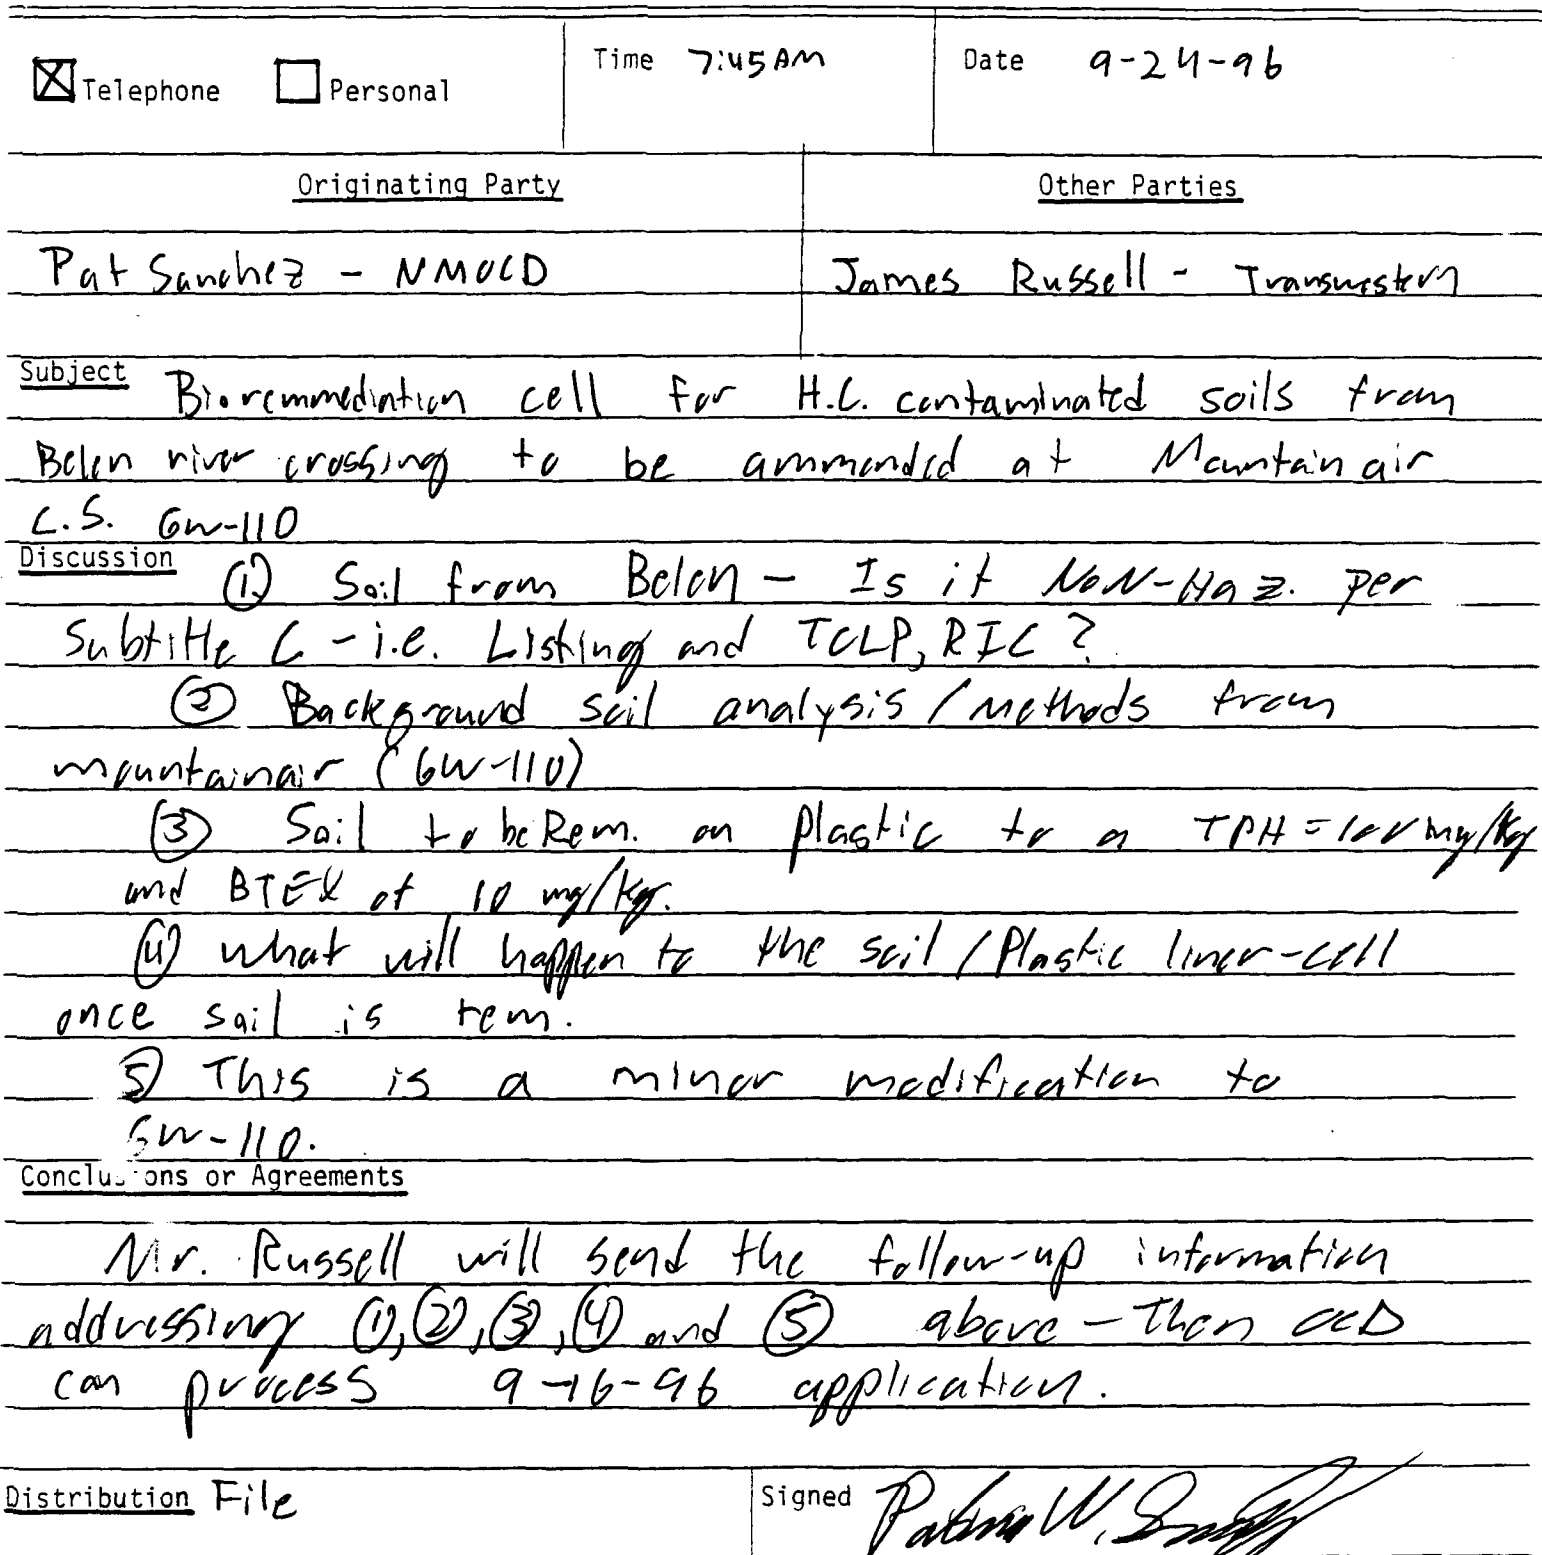 Telephone Personal Time 7:45 AM Date 9-24-96
Originating Party Other Parties
Pat Sanchez - NMOCD James Russell - Transwestern
Subject Bioremmediation cell for H.C. contaminated soils from
Belen river crossing to be ammended at Mountain air
C.S. GW-110
Discussion ① Soil from Belen - Is it NON-Haz. per
Subtitle C - i.e. Listing and TCLP, RIC ?
② Background soil analysis / methods from
mountainair (GW-110)
③ Soil to be Rem. on plastic to a TPH = 100 mg/kg
and BTEX of 10 mg/kg.
④ what will happen to the soil / Plastic liner-cell
once soil is rem.
5) This is a minor modification to
GW-110.
Conclusions or Agreements
Mr. Russell will send the follow-up information
addressing ①, ②, ③, ④ and ⑤ above - Then OCD
can process 9-16-96 application.
Distribution File Signed